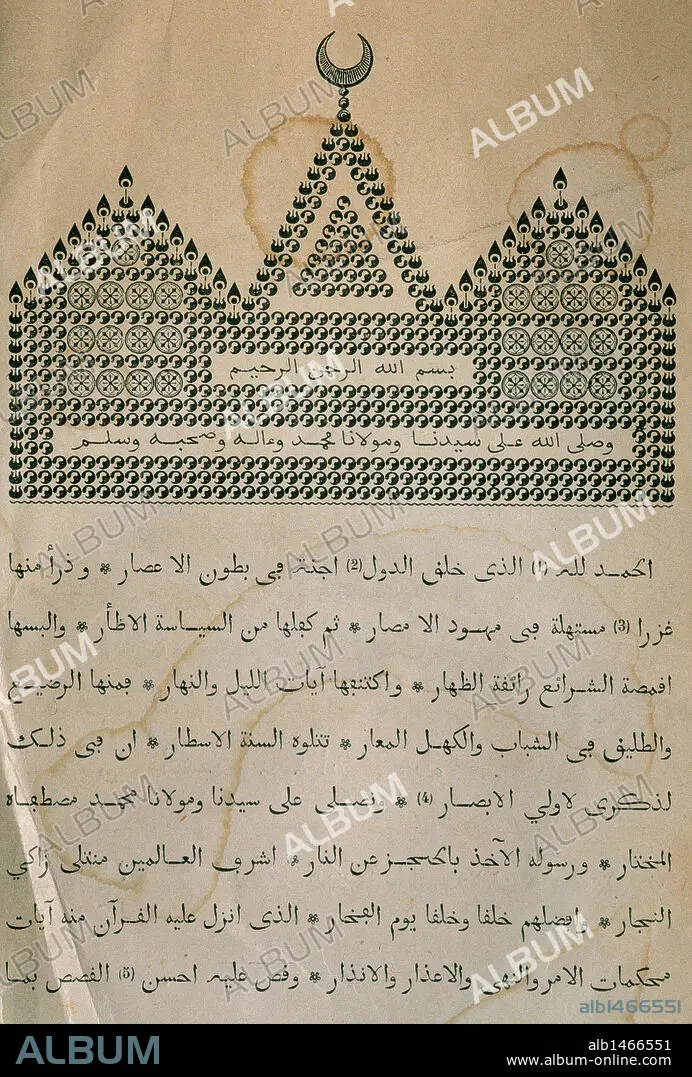 بسم الله الرحمن الرحيم
وصلى الله على سيدنا ومولانا محمد وءاله وصحبه وسلم
الحمد لله (1) الذى خلق الدول (2) اجنة في بطون الاعصار * وذرأ منها
غررا (3) مستهلة في مهود الامصار * ثم كفلها من السياسة الاظأر * والبسها
اقمصة الشرائع رائقة الظهار * واكتنفها آيات الليل والنهار * فمنها الرضيع
والطليق في الشباب والكهل المعار * تتلوه السنة الاسطار * ان في ذلك
لذكرى لاولي الابصار (4) * ونصلى على سيدنا ومولانا محمد مصطفاه
المختار * ورسوله الآخذ بالحجز عن النار * اشرف العالمين منتلى زاكي
النجار * وافضلهم خلقا وخلقا يوم الفخار * الذى انزل عليه القرآن منه آيات
محكمات الامر والنهى والاعذار والانذار * وقص عليه احسن (5) القصص بما
ALBUM
alb1466551
ALBUM
alb1466551
www.album-online.com